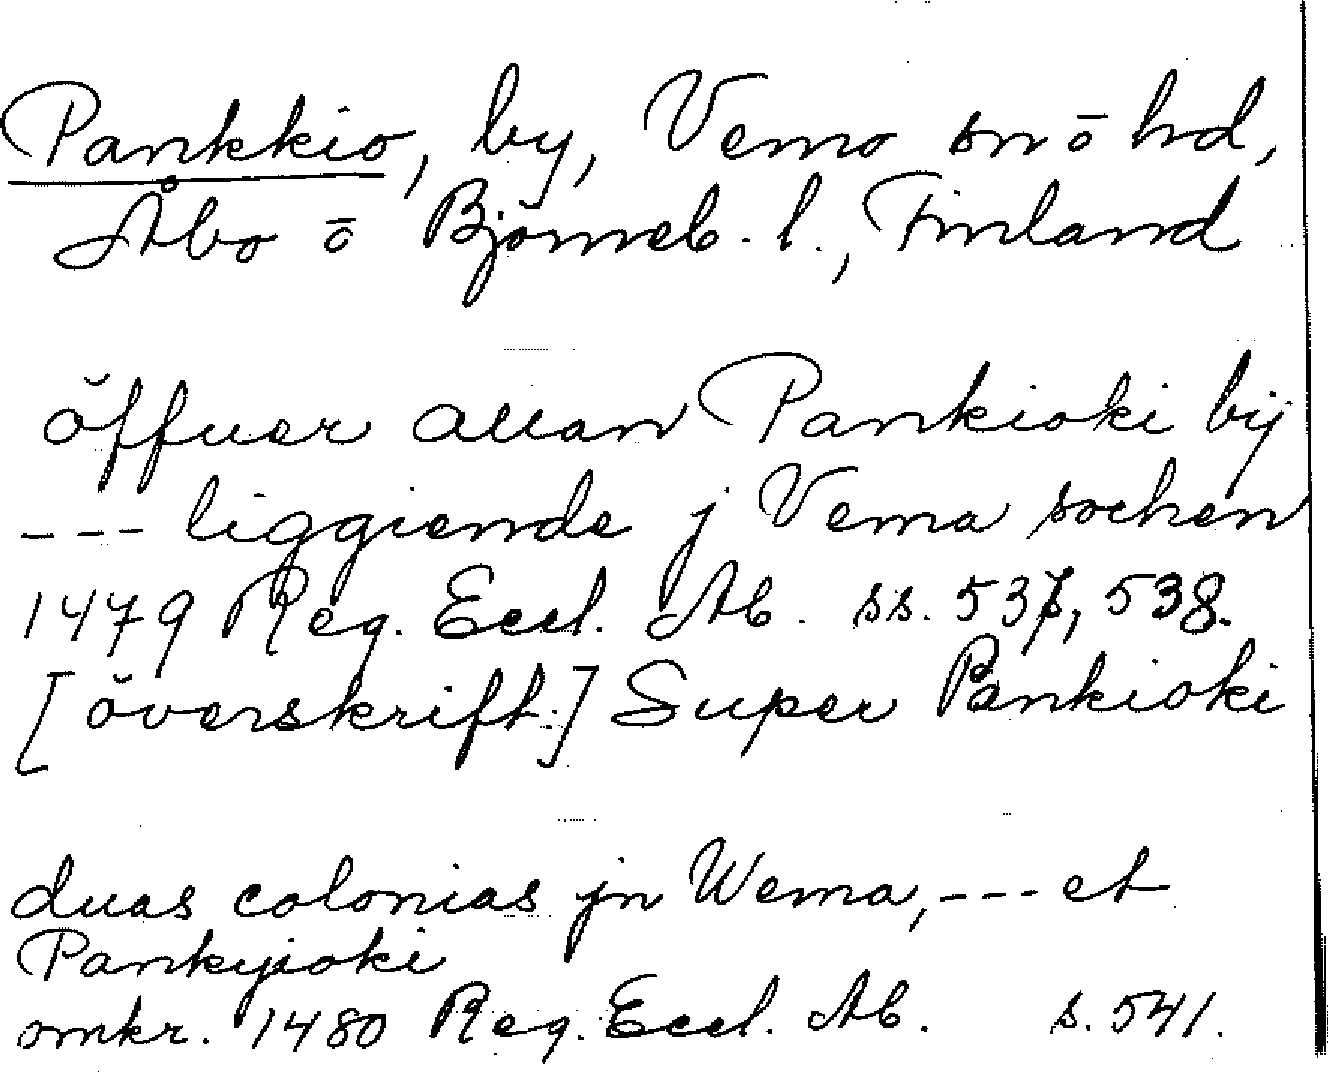 Pankkio, by, Vemo sn ō hd,
Åbo ō Björneb. l., Finland
öffuer allan Pankioki bij
--- liggiende j Vema sochen
1479 Reg. Eccl. Ab. ss. 537, 538.
[överskrift:] Super Pankioki
duas colonias jn Wema, --- et
Pankyioki
omkr. 1480 Reg. Eccl. Ab. s. 541.